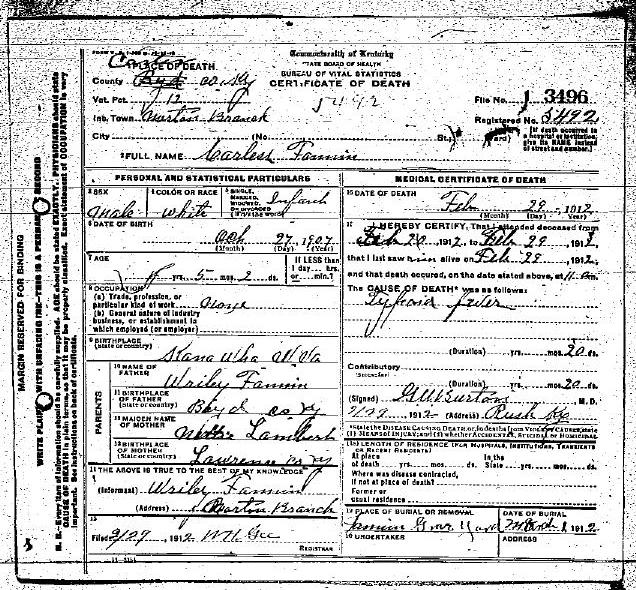 Commonwealth of Kentucky
STATE BOARD OF HEALTH
BUREAU OF VITAL STATISTICS
CERTIFICATE OF DEATH
PLACE OF DEATH
County Boyd co Ky
Vot. Pct. 12
Inc. Town Norton Branch
City (No. St.
5492
File No. 3496
Registered No. 5492
[If death occurred in a hospital or institution, give its NAME instead of street and number.]
2 FULL NAME Carless Fannin
PERSONAL AND STATISTICAL PARTICULARS
3 SEX
Male
4 COLOR OR RACE
White
5 SINGLE, MARRIED, WIDOWED, OR DIVORCED
(Write the word)
6 DATE OF BIRTH
Oct 27, 1907
(Month) (Day) (Year)
7 AGE
yrs. 5 mos. 2 ds.
If LESS than 1 day ... hrs. or ... min.?
8 OCCUPATION
(a) Trade, profession, or particular kind of work None
(b) General nature of industry business, or establishment in which employed (or employer)
9 BIRTHPLACE
(State or country)
Kana Wha W Va
PARENTS
10 NAME OF FATHER
Wriley Fannin
11 BIRTHPLACE OF FATHER
(State or country)
Boyd co Ky
12 MAIDEN NAME OF MOTHER
Lambert
13 BIRTHPLACE OF MOTHER
(State or country)
Lawrence co Ky
14 THE ABOVE IS TRUE TO THE BEST OF MY KNOWLEDGE
(Informant) Wriley Fannin
(Address) Norton Branch
15
Filed 2/29 1912
REGISTRAR
MEDICAL CERTIFICATE OF DEATH
16 DATE OF DEATH
Feb 29 1912
(Month) (Day) (Year)
17 I HEREBY CERTIFY, That I attended deceased from
Feb 20 1912 to Feb 29 1912
that I last saw him alive on Feb 29 1912
and that death occurred, on the date stated above, at 11
The CAUSE OF DEATH* was as follows:
Typhoid fever
(Duration) yrs. mos. 20 ds.
Contributory
(Duration) yrs. mos. 20 ds.
(Signed) G W Burton M. D.
2/29 1912 (Address) Rush Ky
*State the DISEASE CAUSING DEATH, or, in deaths from VIOLENT CAUSES, state (1) MEANS OF INJURY; and (2) whether ACCIDENTAL, SUICIDAL or HOMICIDAL
18 LENGTH OF RESIDENCE (FOR HOSPITALS, INSTITUTIONS, TRANSIENTS OR RECENT RESIDENTS)
At place of death yrs. mos. ds. In the State yrs. mos. ds.
Where was disease contracted, if not at place of death?
Former or usual residence
19 PLACE OF BURIAL OR REMOVAL
Fannin Grave Yard
DATE OF BURIAL
March 1 1912
20 UNDERTAKER
ADDRESS
MARGIN RESERVED FOR BINDING
WRITE PLAINLY WITH UNFADING INK—THIS IS A PERMANENT RECORD
N. B.—Every item of information should be carefully supplied. AGE should be stated EXACTLY. PHYSICIANS should state CAUSE OF DEATH in plain terms, so that it may be properly classified. Exact statement of OCCUPATION is very important. See instructions on back of certificate.